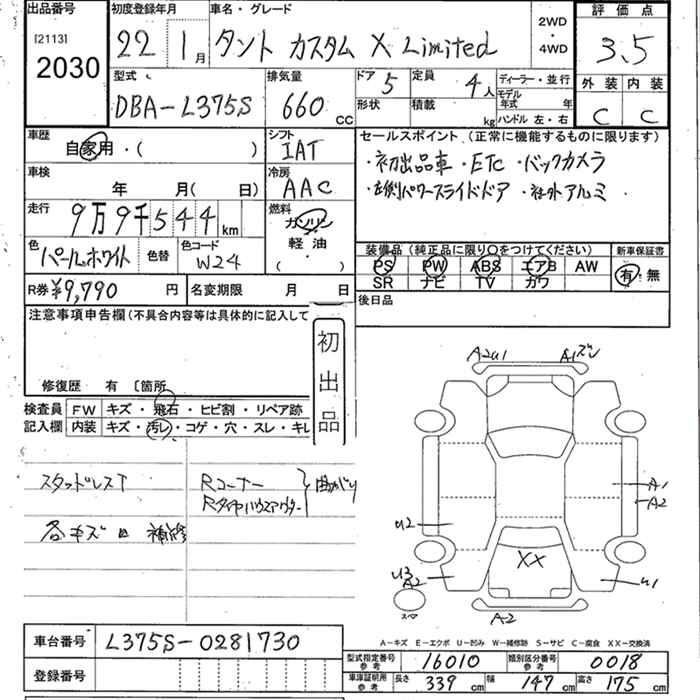 出品番号
[2113]
2030
初度登録年月
22 1月
車名・グレード
タント カスタム X Limited
2WD・4WD
評価点
3.5
外装 内装
C C
型式
DBA-L375S
排気量
660 CC
ドア 5
形状
定員 4人
積載 kg
ディーラー・並行
モデル年式 年
ハンドル 左・右
車歴
自家用・( )
シフト
IAT
セールスポイント(正常に機能するものに限ります)
・初出品車 ・ETC ・バックカメラ
・左側パワースライドドア ・社外アルミ
車検
年 月( 日)
冷房
AAC
走行
9万9千544km
燃料
ガソリン
軽油
( )
色
パールホワイト
色替
色コード
W24
装備品(純正品に限り○をつけてください)
PS PW ABS エアB AW
SR ナビ TV カワ
新車保証書
有 無
R券 ¥9,790円
名変期限 月 日
後日品
注意事項申告欄(不具合内容等は具体的に記入して
初出品
修復歴 有 〔箇所
検査員記入欄
FW キズ・飛石・ヒビ割・リペア跡
内装 キズ・汚レ・コゲ・穴・スレ・キレ
スタッドレスT
Rコーナー
Rタイヤハウスアウター
曲がり
各キズ凹 補修
A2U1
A1ズレ
A1
A2
U2
XX
U3
A2
U1
スペア
A2
A-キズ E-エクボ U-凹み W-補修跡 S-サビ C-腐食 XX-交換済
車台番号
L375S-0281730
登録番号
型式指定番号 参考 16010
類別区分番号 参考 0018
車庫証明用 参考
長さ 339cm
幅 147cm
高さ 175cm